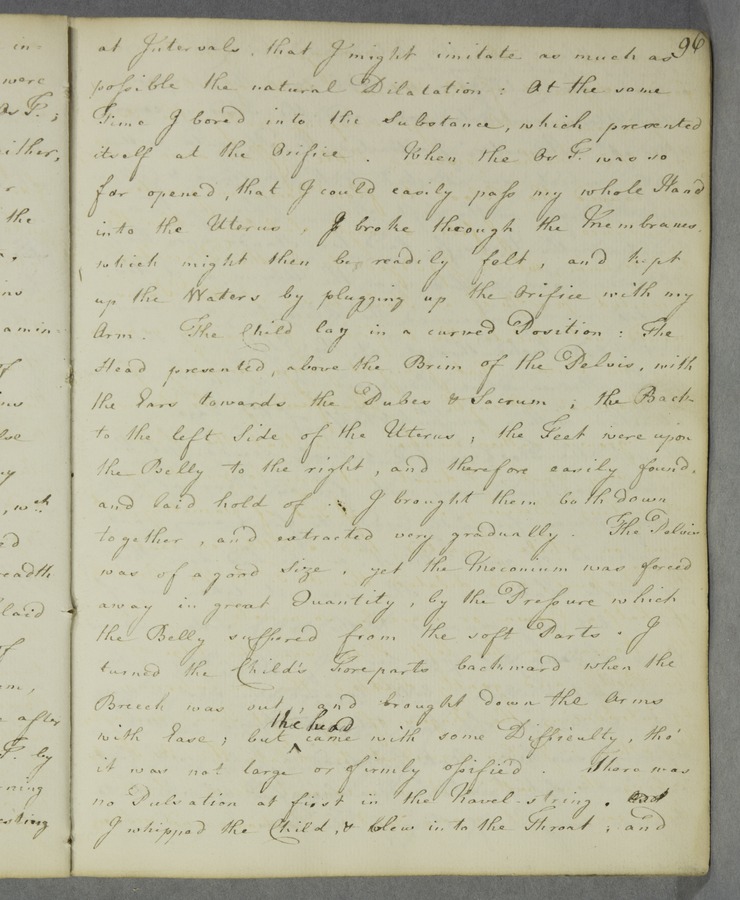 96
at Intervals, that I might imitate as much as
possible the natural Dilatation: At the same
Time I bored into the Substance, which presented
itself at the Orifice. When the Os T. was so
far opened, that I could easily pass my whole Hand
into the Uterus, I broke through the Membranes,
which might then be readily felt, and kept
up the Waters by plugging up the Orifice with my
Arm. The Child lay in a curved Position: The
Head presented, above the Brim of the Pelvis, with
the Ears towards the Pubes & Sacrum; the Back
to the left Side of the Uterus; the Feet were upon
the Belly to the right, and therefore easily found,
and laid hold of. I brought them both down
together, and extracted very gradually. The Pelvis
was of a good Size, yet the Meconium was forced
away in great Quantity, by the Pressure which
the Belly suffered from the soft Parts. I
turned the Child's Foreparts backward when the
Breech was out, and brought down the Arms
the head
with Ease; but came with some Difficulty, tho'
it was not large or firmly ossified. There was
no Pulsation at first in the Navel-string.
I whipped the Child, & blew into the Throat; and
in
were
Os T.;
either,
r
the
ins
amin
of
ns
y
, wch
ed
readth
laid
of
em,
e after
T. by
ning